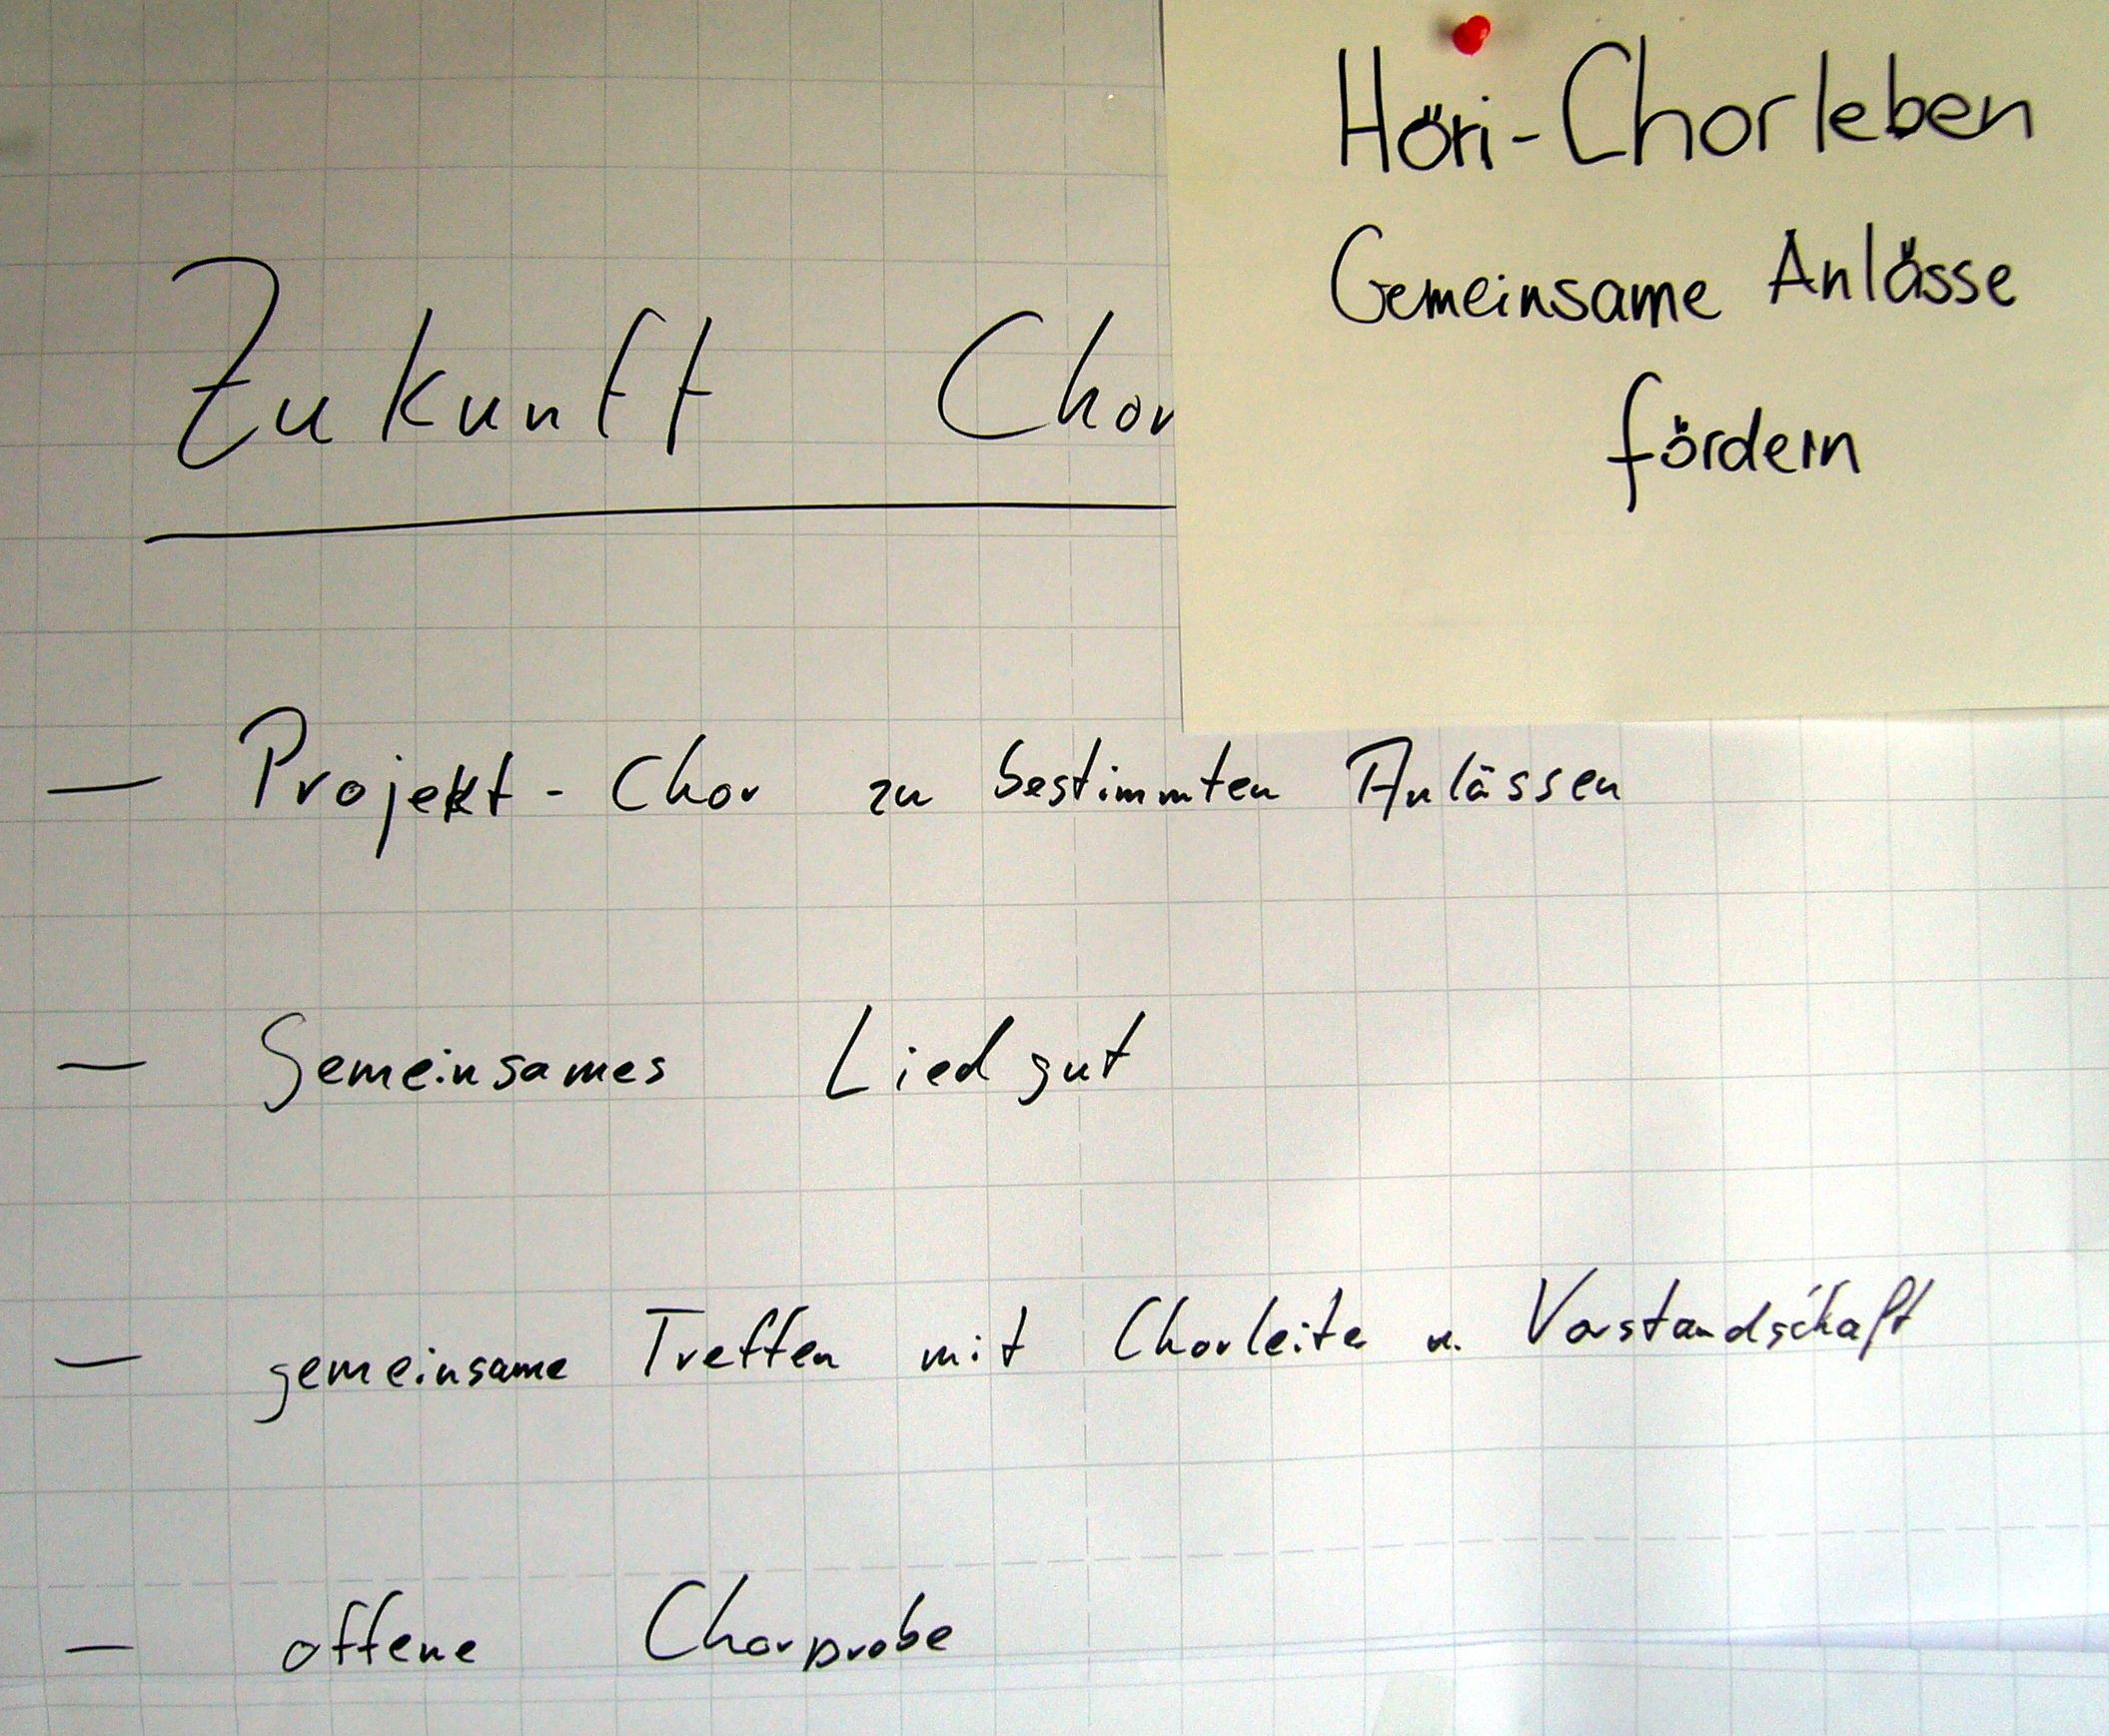 Höri-Chorleben
Gemeinsame Anlässe
fördern
Zukunft Chor
— Projekt-Chor zu bestimmten Anlässen
— Gemeinsames Liedgut
— gemeinsame Treffen mit Chorleiter u. Vorstandschaft
— offene Chorprobe